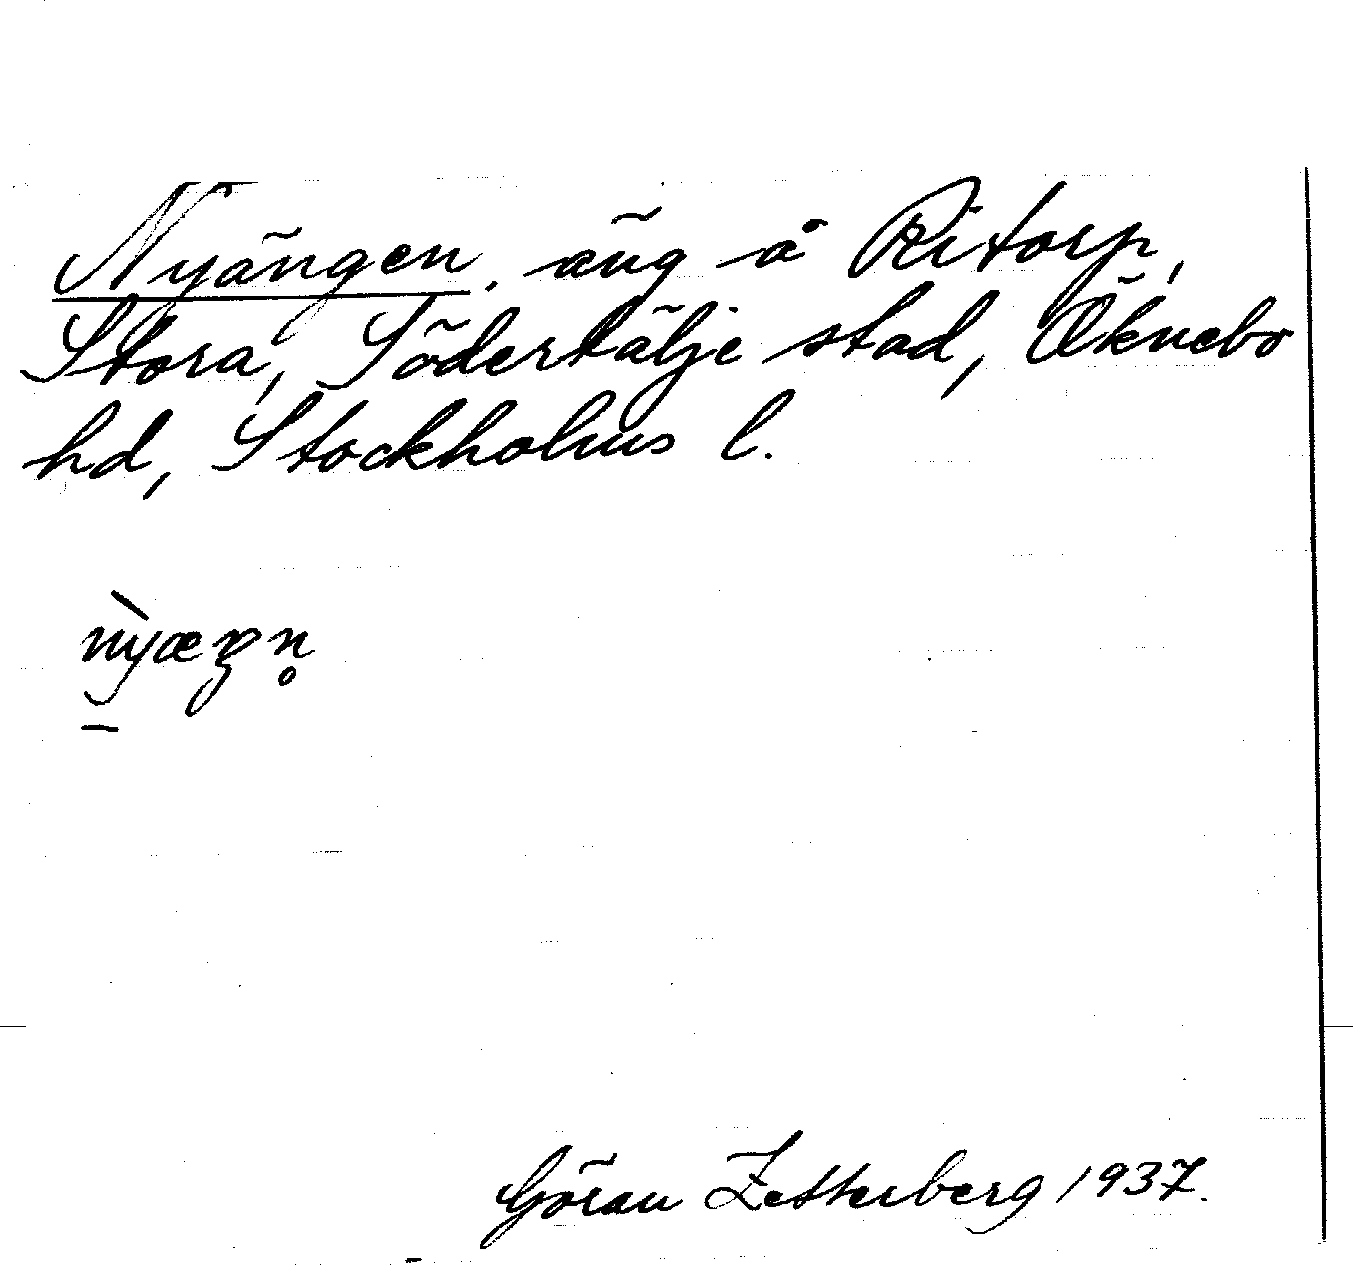 Nyängen, äng å Ritorp,
Stora, Södertälje stad, Öknebo
hd, Stockholms l.
nỳæŋn̥
Göran Zetterberg 1937.